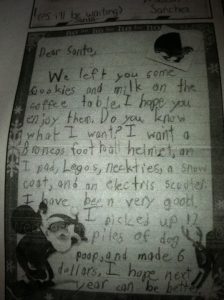 (es i'll be waiting)
Dear Santa,
We left you some
cookies and milk on the
coffee table. I hope you
enjoy them. Do you know
what I want? I want a
Broncos football helmet, an
I pad, Legos, neckties, a snow
coat, and an electris scooter.
I have been very good.
I picked up 12
piles of dog
poop, and made 6
dollars. I hope next
year can be better